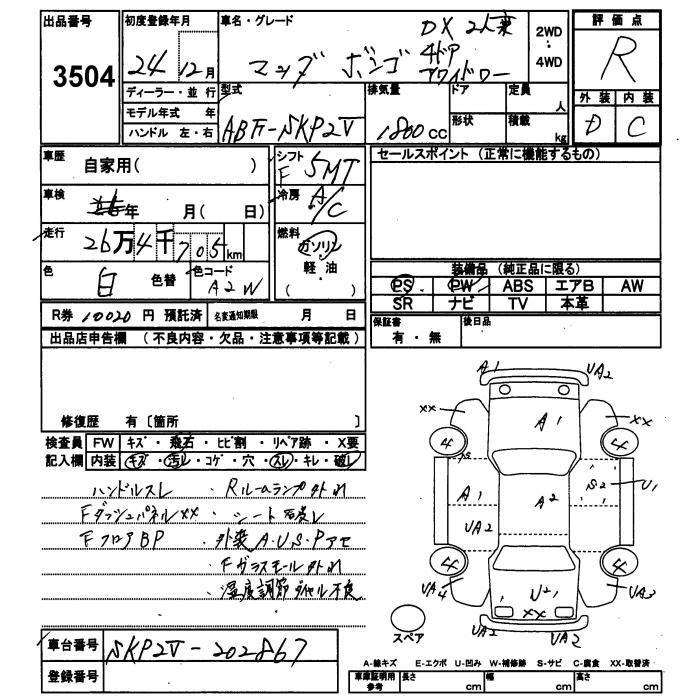 出品番号 初度登録年月 車名・グレード 評価点
3504 24 12月 マツダ ボンゴ DX 2人乗 2WD・4WD R
4ドア
ディーラー・並行 型式 排気量 ドア 定員 人 外装 内装
モデル年式 年 ABF-SKP2V 1800cc 形状 積載 kg D C
ハンドル 左・右
車歴 自家用( ) シフト F 5MT セールスポイント (正常に機能するもの)
車検 年 月( 日) 冷房 A/C
走行 26万4千705km 燃料 ガソリン
軽・油
( )
色 白 色替 色コード A2W
装備品 (純正品に限る)
PS PW ABS エアB AW
SR ナビ TV 本革
R券 10020 円 預託済 名変通知期限 月 日 保証書 有・無 後日品
出品店申告欄 (不良内容・欠品・注意事項等記載)
修復歴 有〔箇所 〕
検査員 FW キズ・飛石・ヒビ割・リペア跡・X要
記入欄 内装 キズ・汚レ・コゲ・穴・スレ・キレ・破レ
ハンドルスレ ・Rルームランプ外れ
Fダッシュパネルxx ・シート
FフロアBP ・外装A・U・S・Pアセ
・Fガラスモール外れ
・温度調節ダイヤル不良
A1 UA2
xx A1 xx
4 4
A1 A2 S2 U1
UA2
4 4
UA4 U2 UA3
xx
UA2 UA2
スペア
車台番号 SKP2V-202867
登録番号
A-線キズ E-エクボ U-凹み W-補修跡 S-サビ C-腐食 XX-取替済
車庫証明用参考 長さ cm 幅 cm 高さ cm